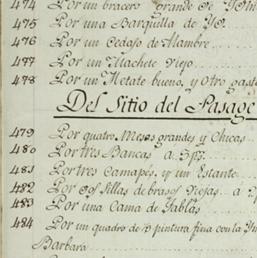 474 Por un bracero grande de
475 Por una Barquilla de Yd.
476 Por un Cedaso de Alambre
477 Por un Machete Viejo
478 Por un Metate bueno, y otro gast
Del Sitio del Pasage
479 Por quatro Mesas grandes y Chicas
480 Por tres Bancas a 3ps.
481 Por tres Camapés, y un Estante
482 Por dos Sillas de brasos viejas a
483 Por una Cama de Tablas
484 Por un quadro de pintura fina con la
Barbara